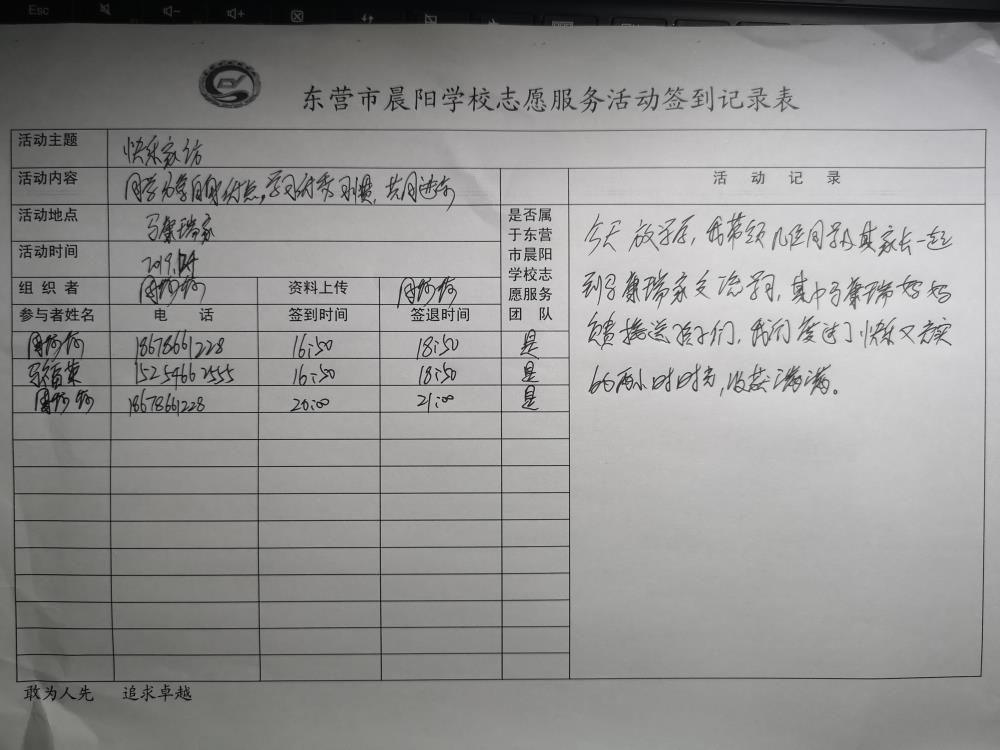 Esc
东营市晨阳学校志愿服务活动签到记录表
活动主题 快乐家访
活动内容 同学 学习 共同进步
活动地点 马集瑞家
活动时间 2019.
组织者 周 资料上传 周
参与者姓名 电话 签到时间 签退时间
是否属
于东营
市晨阳
学校志
愿服务
团队
周 18678661228 16:50 18:50 是
15254662555 16:50 18:50 是
周 18678661228 20:00 21:00 是
活动记录
今天放学后,我带领几位同学及其家长一起
到马集瑞家交流学习,其中马集瑞妈妈
负责接送孩子们,我们度过了快乐又充实
的两小时时光,收获满满。
敢为人先 追求卓越